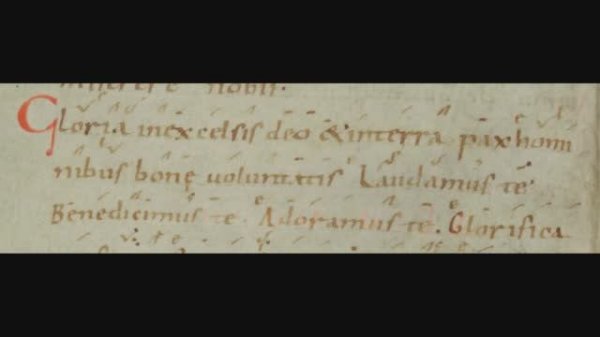 miserere nobis.
Gloria in excelsis deo & in terra pax homi
nibus bonę voluntatis Laudamus te
Benedicimus te. Adoramus te. Glorifica